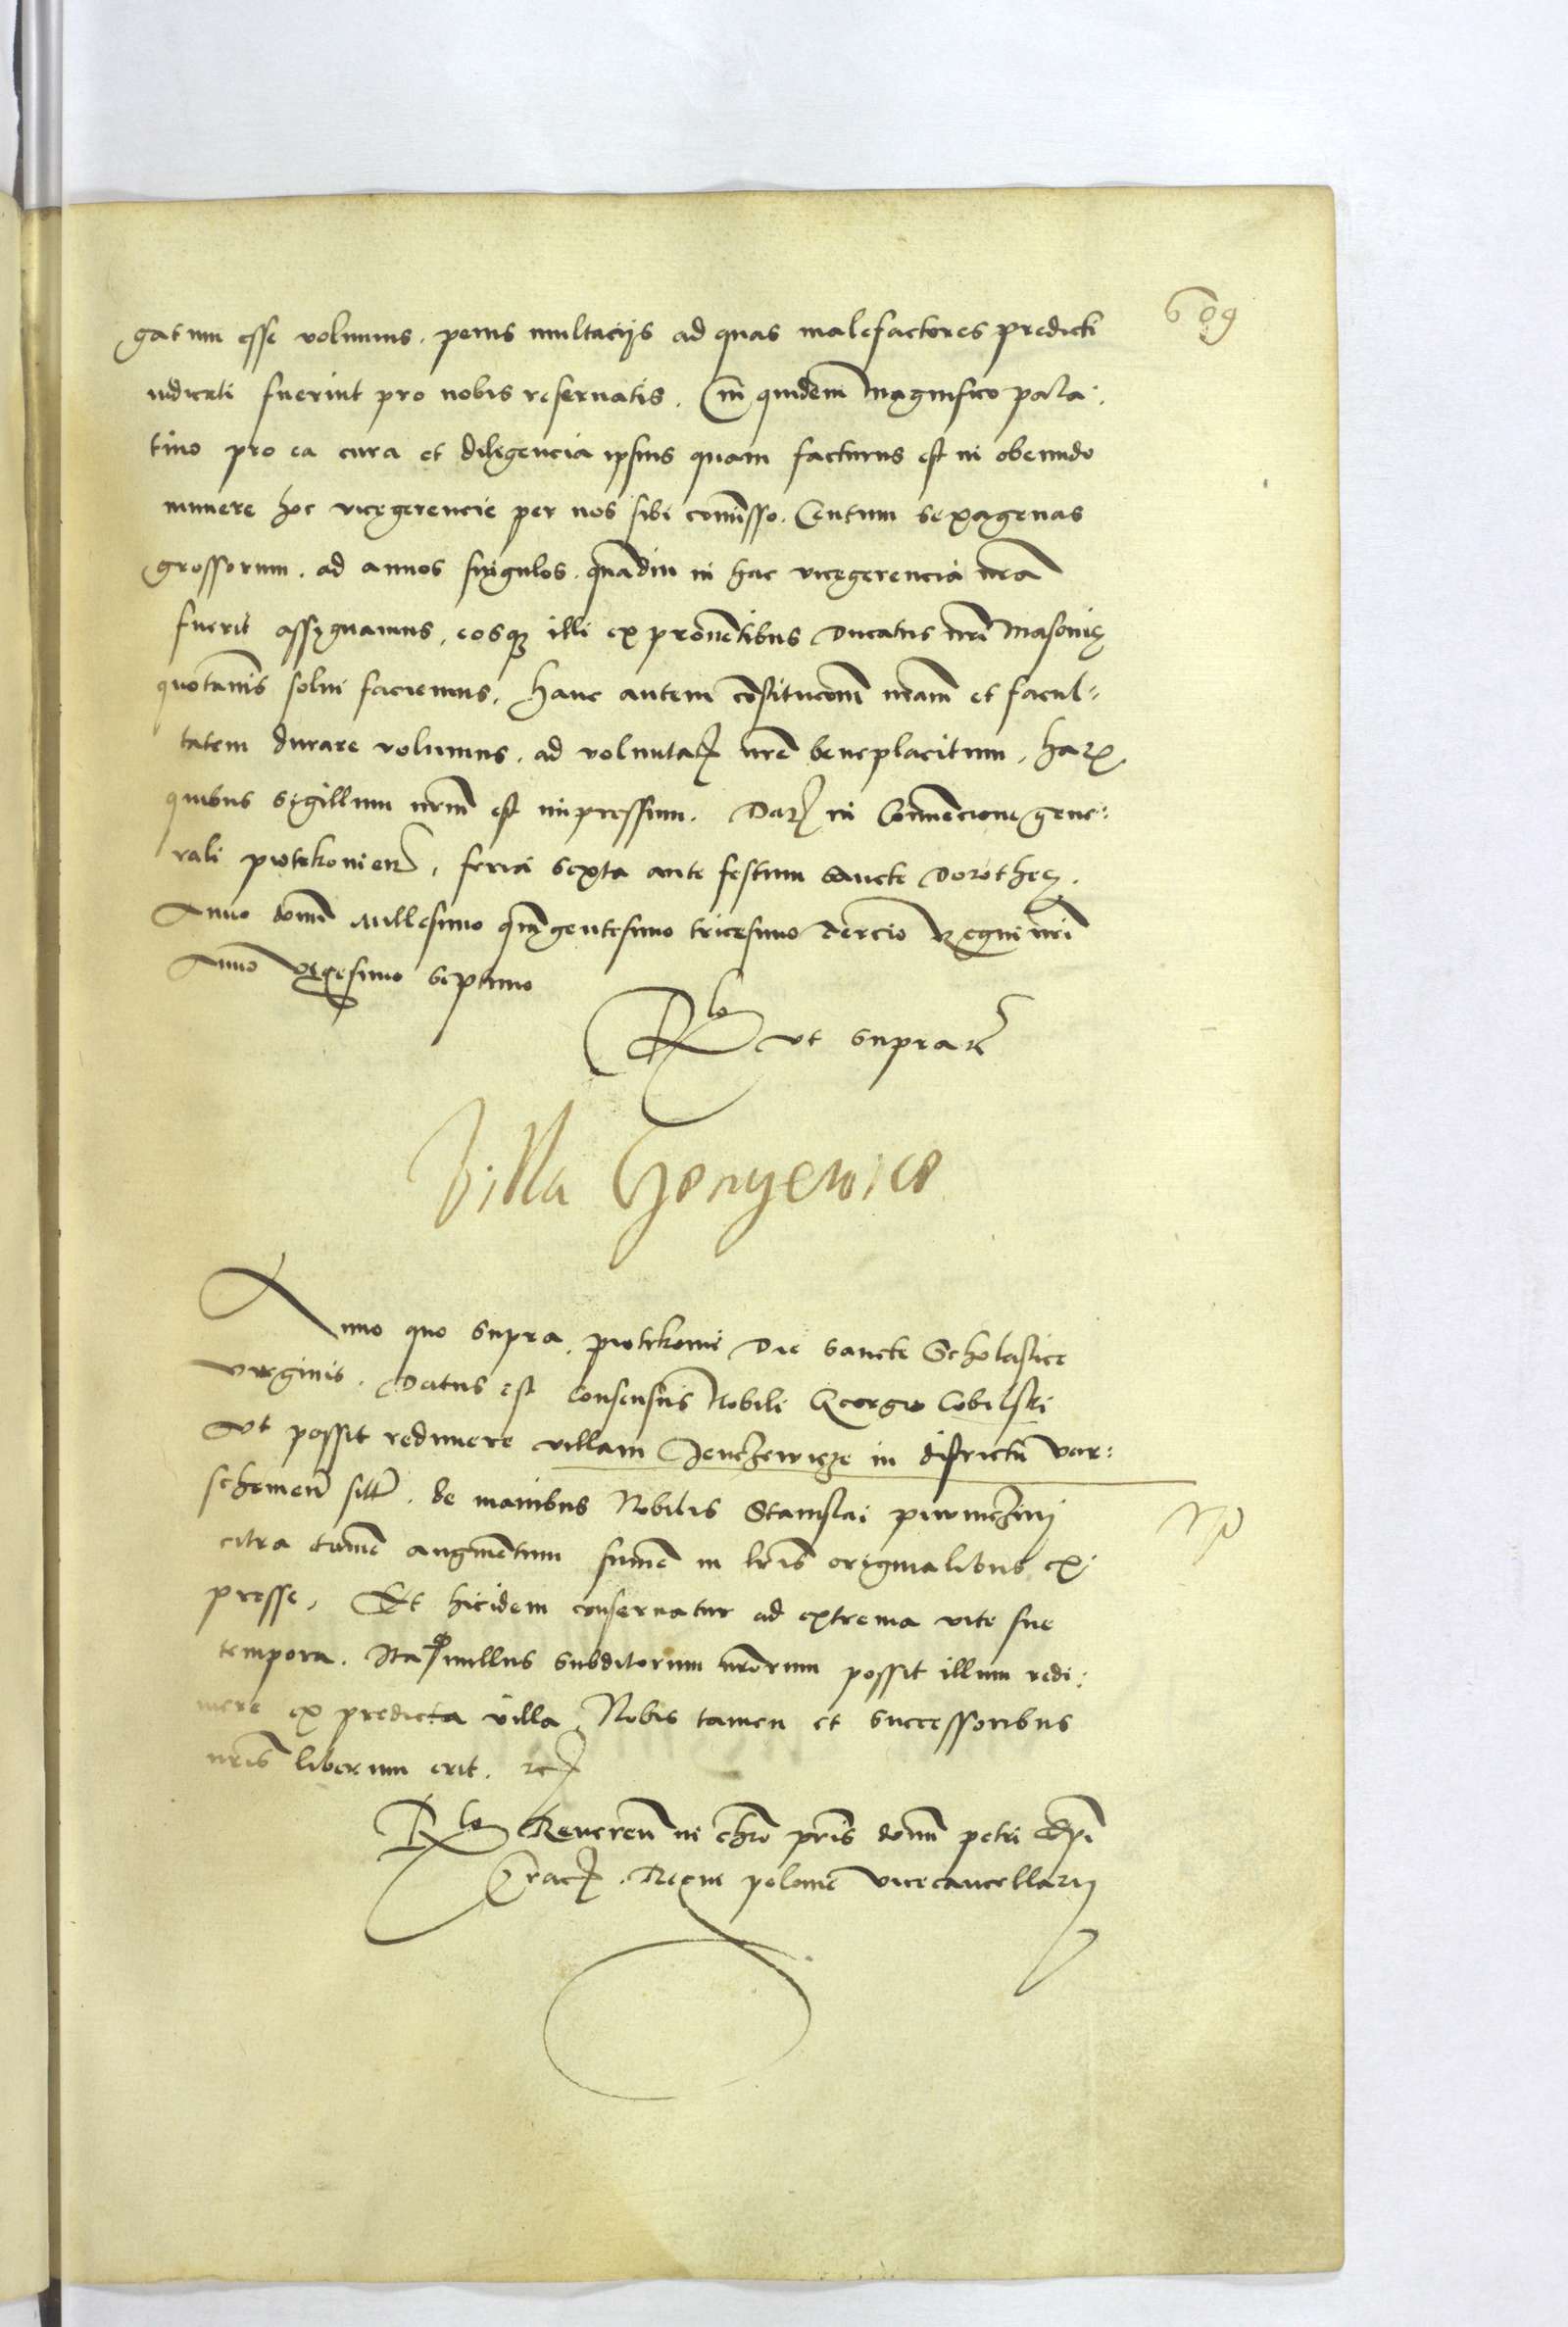 609
gatum esse volumus. penis multacijs ad quas malefactores predicti
iudicati fuerint pro nobis reseruatis. Cui quidem Magnifico pala:
tino pro ea cura et diligencia ipsius quam facturus est in obeundo
munere hoc vicegerencie per nos sibi comisso. Centum sexagenas
grossorum. ad annos singulos. quādiu in hac vicegerencia nrā
fuerit assygnamus, eosqȝ illi ex prouētibus Ducatus nrī Masouię
quotānis solui faciemus. hanc autem cōstitucōnē nrām et facul=
tatem durare volumus. ad voluntat nrē beneplacitum. har
quibus sigillum nrm̄ est impressum. Dat in Conuencione gene:
rali piotrkouien, feria sexta ante festum sancte Dorotheę.
Anno domī Millesimo quīgentesimo tricesimo Tercio Regni nrī
Anno vigesimo septimo
Rlo vt supra
Villa Gonyewice
Anno quo supra. piotrkouie Die sancte Scholastice
virginis. Datus est consensus Nobili Georgio Cobilski
Vt possit redimere villam Jenczewicze in districtu var:
schouien sitt. de manibus Nobilis Stanislai
citra tamē augmētum sumē in lrīs originalibus ex:
presse. Et hic idem conseruatur ad extrema vite sue
tempora. Ita qd nullus subditorum nrōrum possit illum redi:
mere ex predicta villa Nobis tamen et successoribus
nrīs liberum erit. etc
Rlo Reueren in chrō prīs domī petri Epī
Crac. Regni polonie vicecancellarij